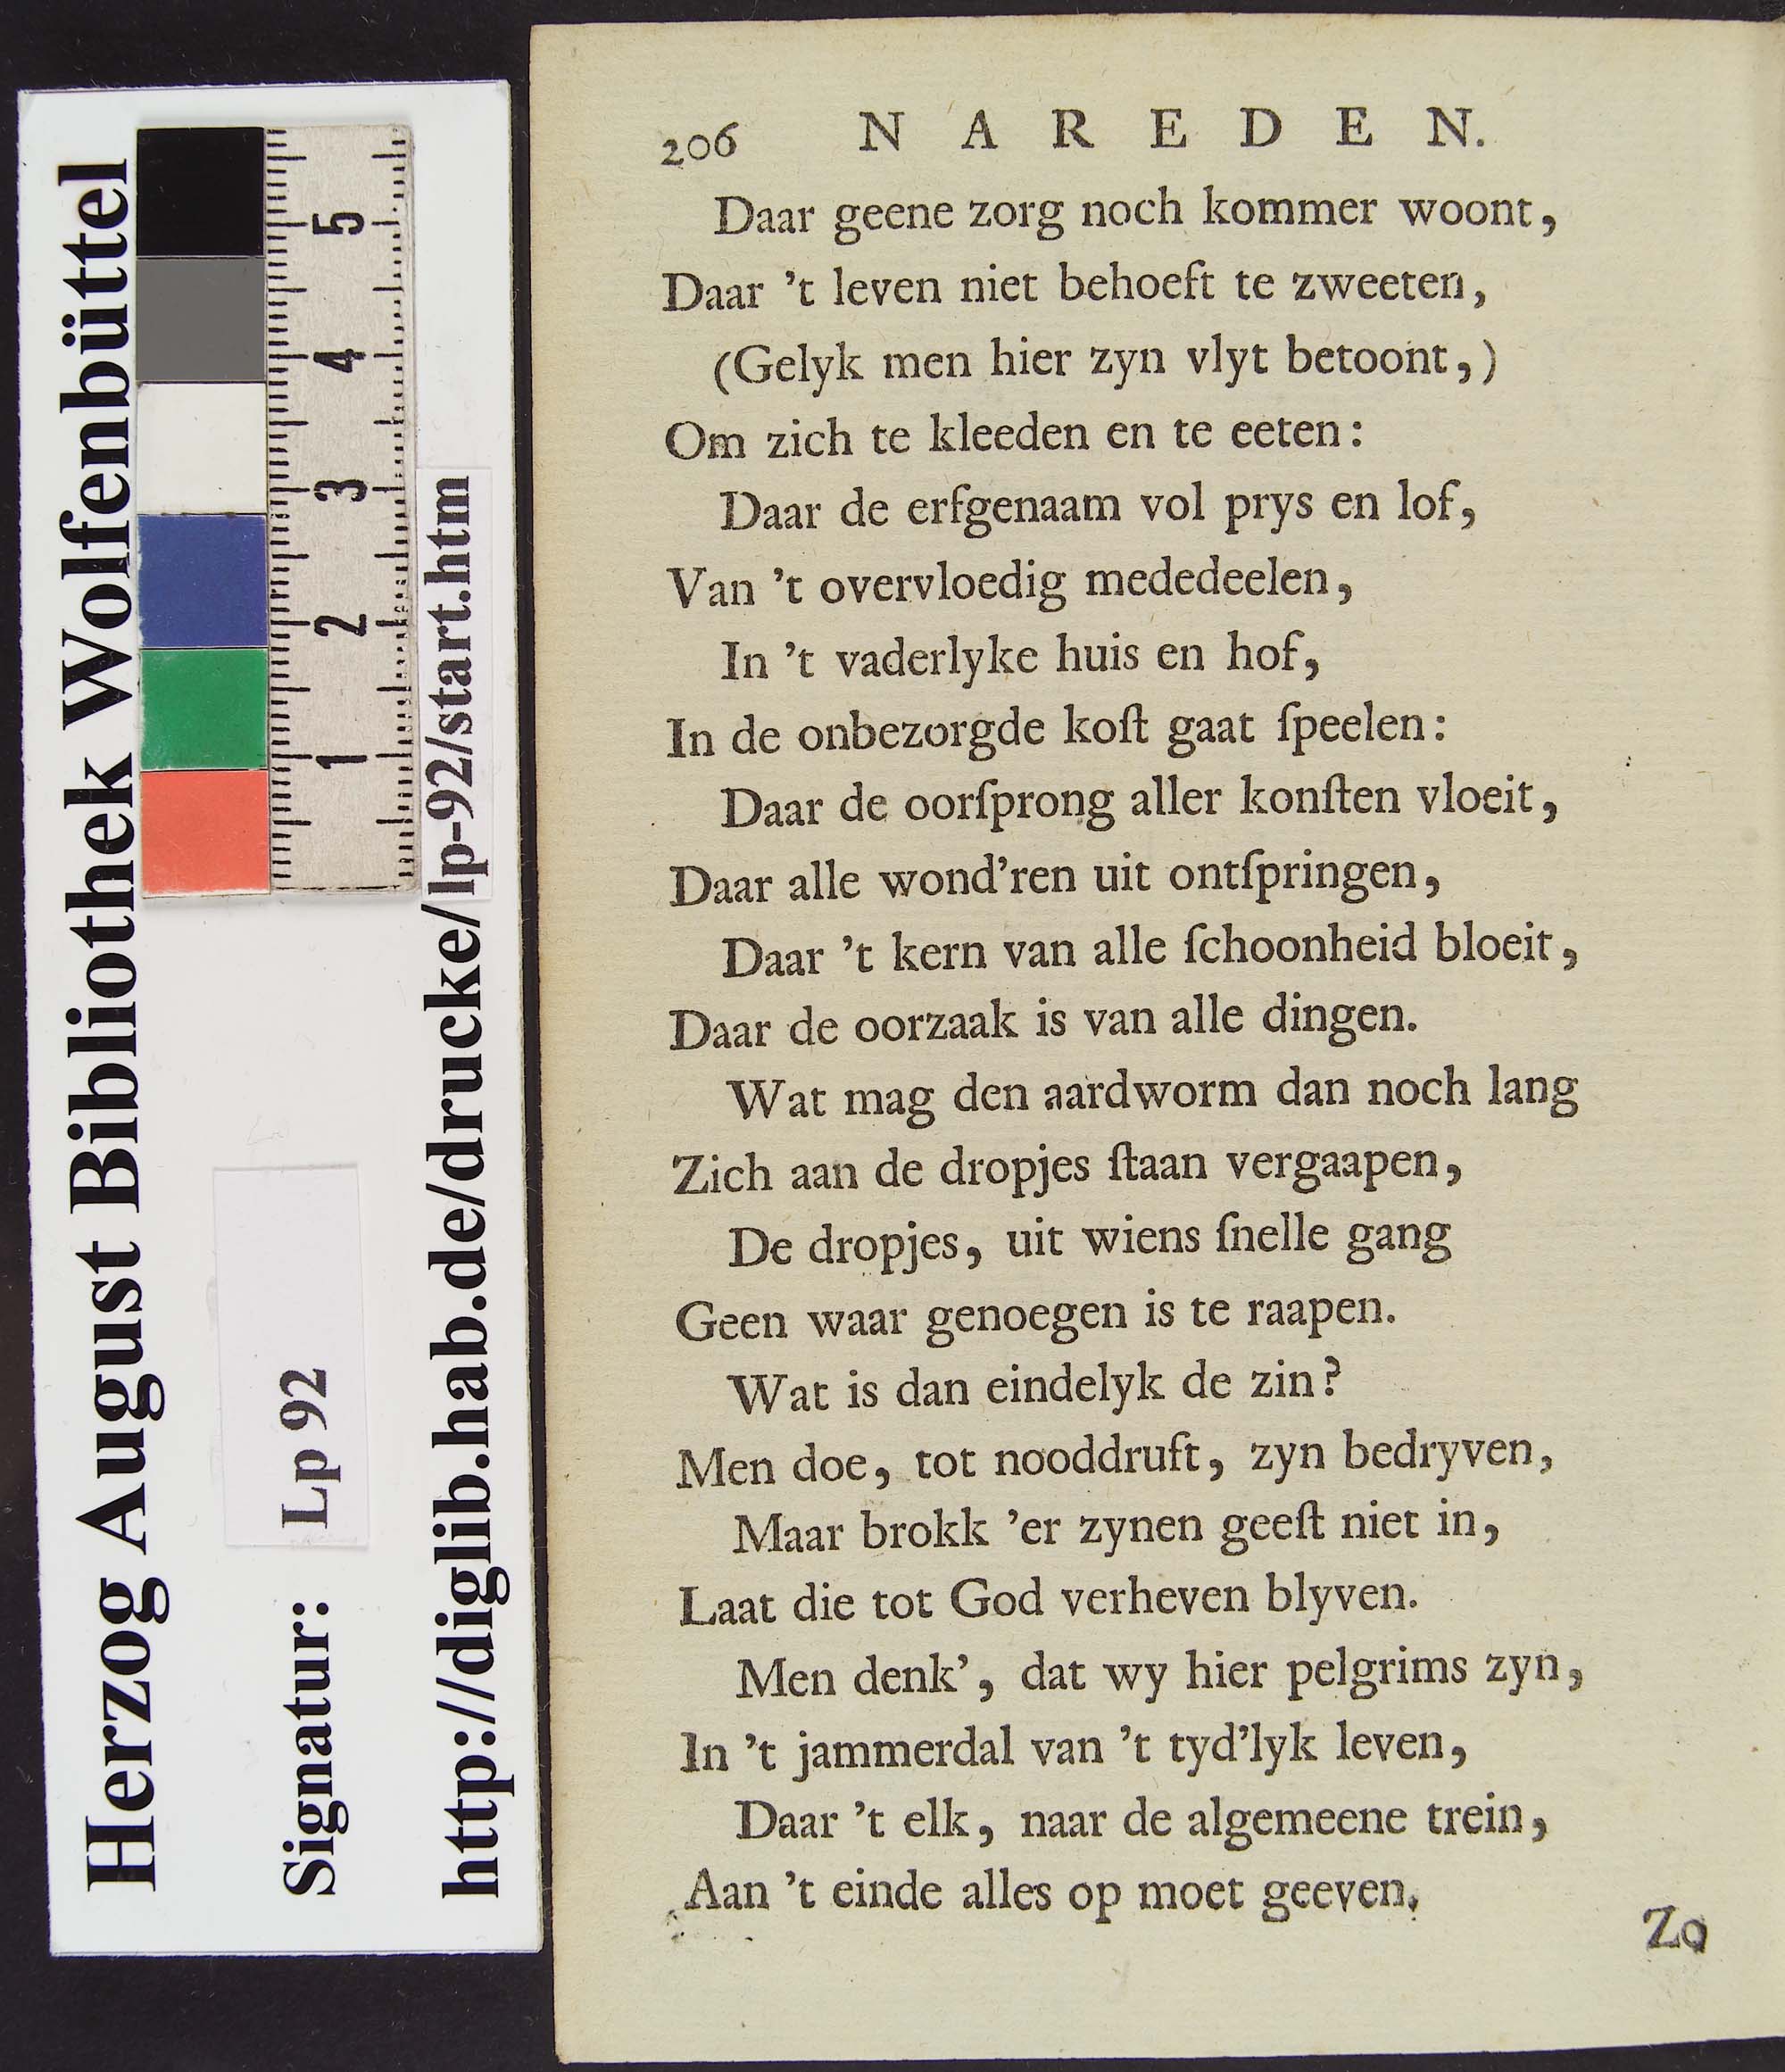 Herzog August Bibliothek Wolfenbüttel
Signatur: Lp 92
http://diglib.hab.de/drucke/lp-92/start.htm
5
4
3
2
1
206 NAREDEN.
Daar geene zorg noch kommer woont,
Daar 't leven niet behoeft te zweeten,
(Gelyk men hier zyn vlyt betoont,)
Om zich te kleeden en te eeten:
Daar de erfgenaam vol prys en lof,
Van 't overvloedig mededeelen,
In 't vaderlyke huis en hof,
In de onbezorgde koſt gaat ſpeelen:
Daar de oorſprong aller konſten vloeit,
Daar alle wond'ren uit ontſpringen,
Daar 't kern van alle ſchoonheid bloeit,
Daar de oorzaak is van alle dingen.
Wat mag den aardworm dan noch lang
Zich aan de dropjes ſtaan vergaapen,
De dropjes, uit wiens ſnelle gang
Geen waar genoegen is te raapen.
Wat is dan eindelyk de zin?
Men doe, tot nooddruft, zyn bedryven,
Maar brokk 'er zynen geeſt niet in,
Laat die tot God verheven blyven.
Men denk', dat wy hier pelgrims zyn,
In 't jammerdal van 't tyd'lyk leven,
Daar 't elk, naar de algemeene trein,
Aan 't einde alles op moet geeven.
Zo